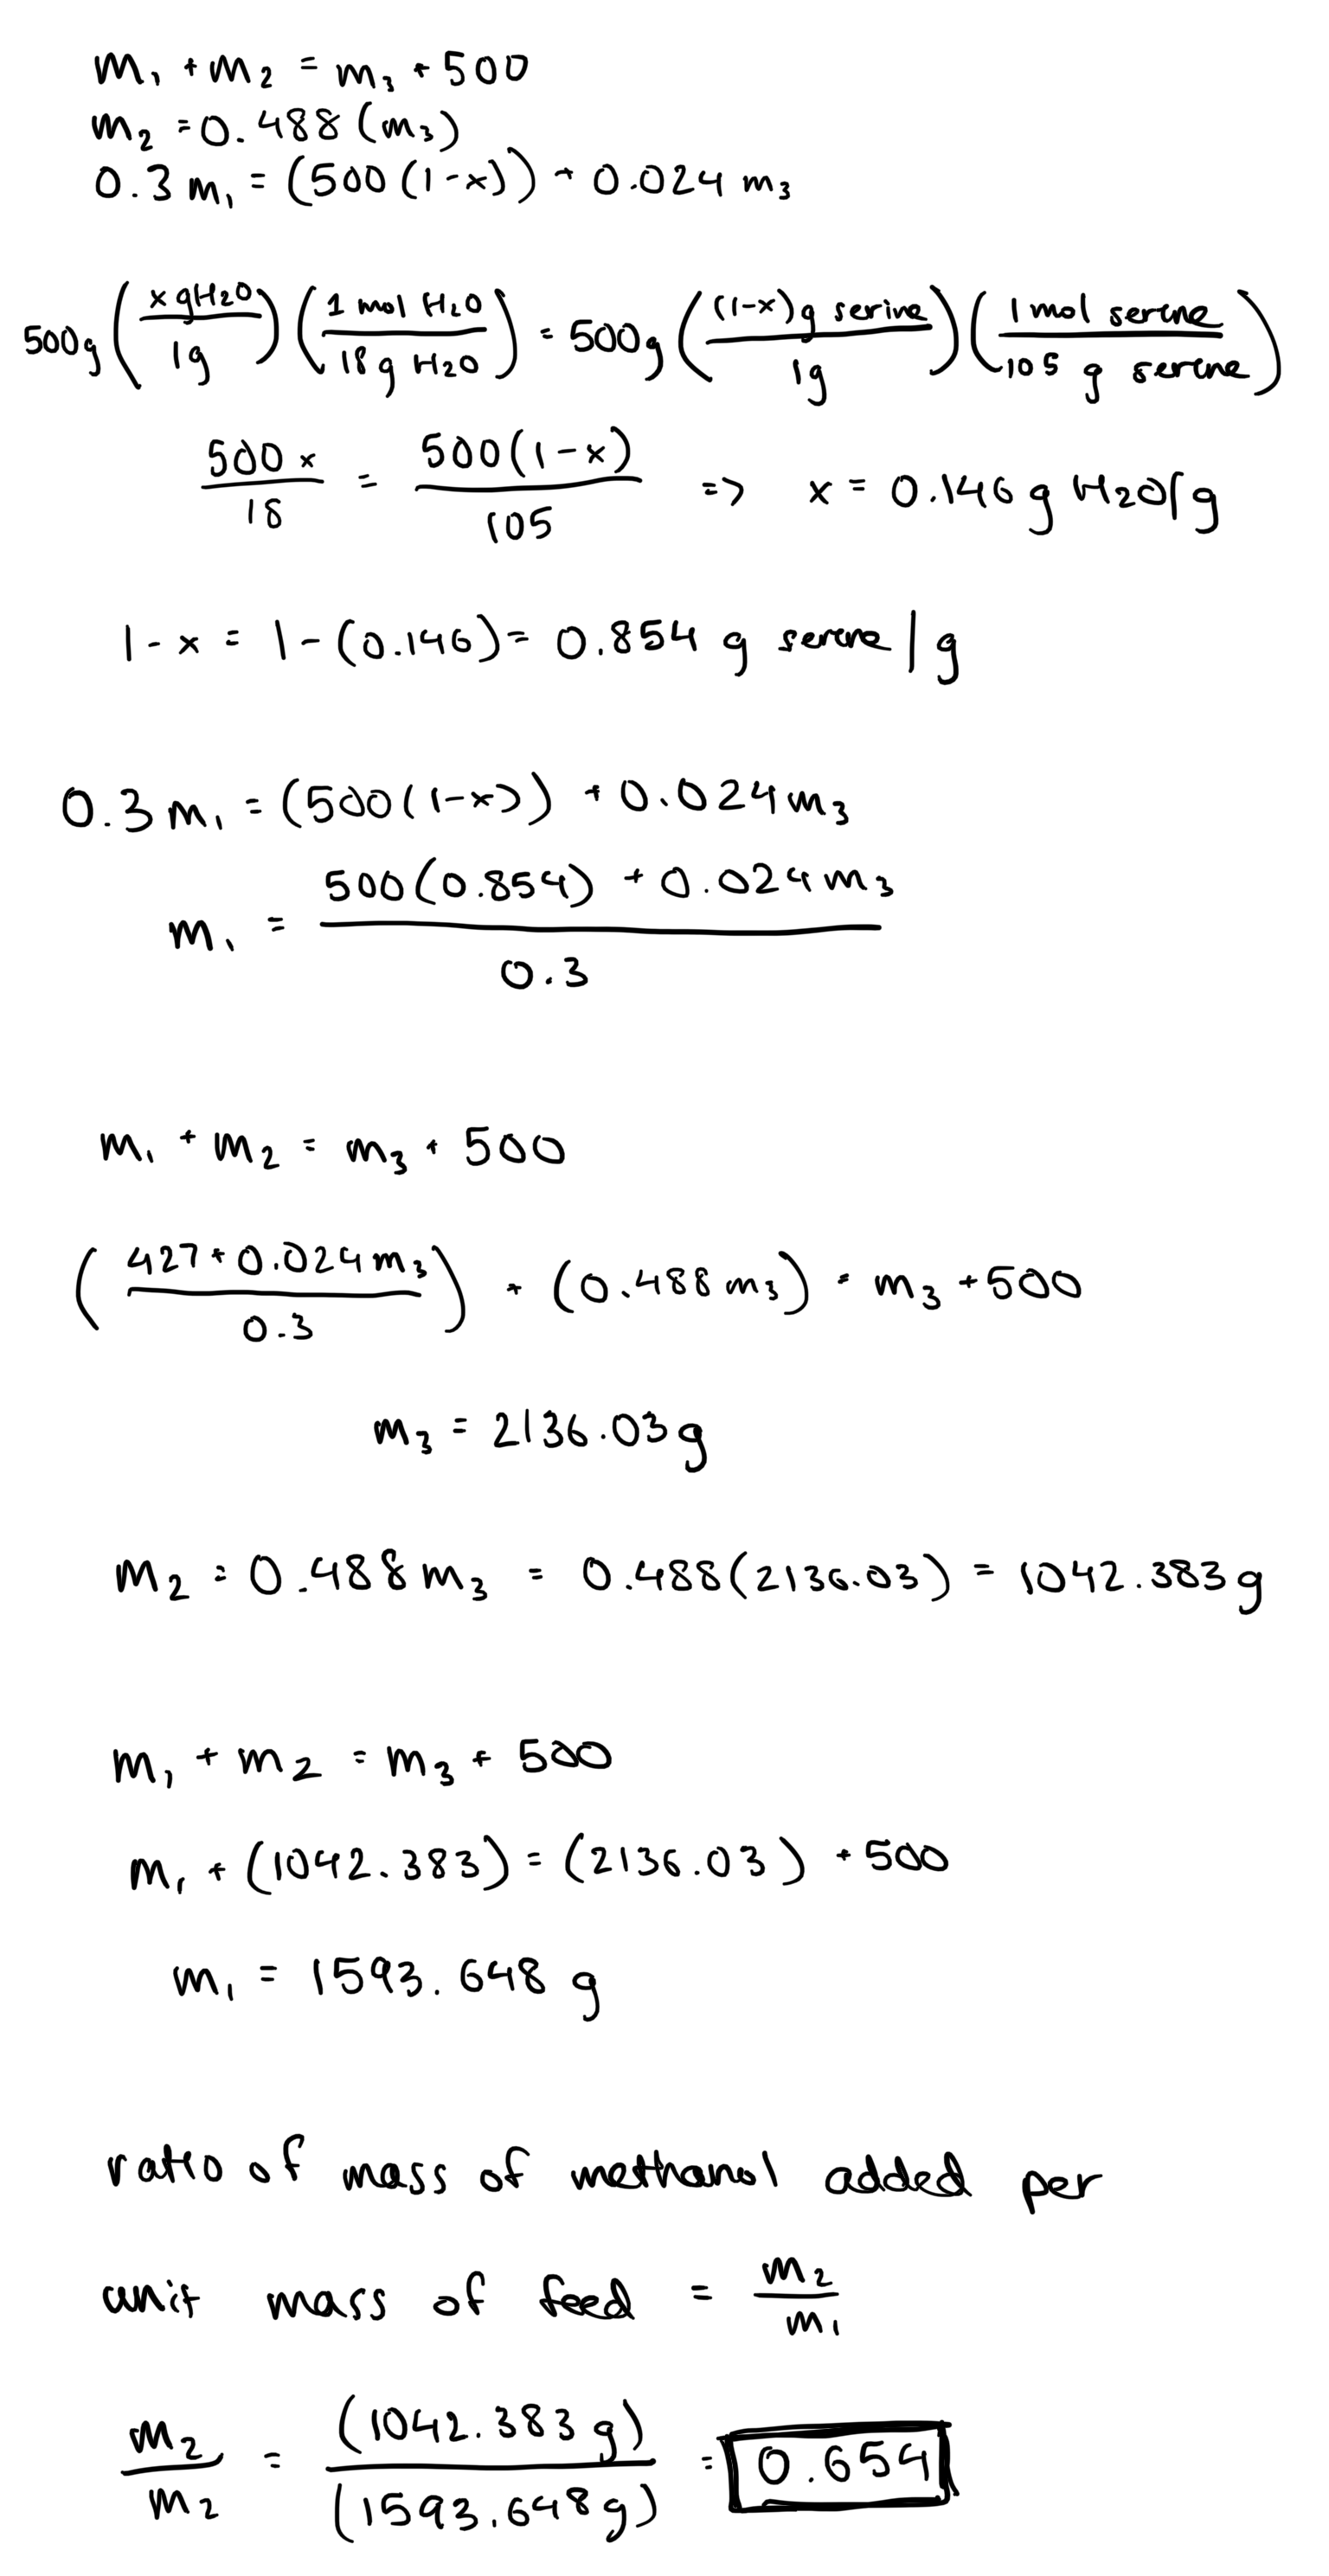 m₁ + m₂ = m₃ + 500
m₂ = 0.488 (m₃)
0.3 m₁ = (500 (1-x)) + 0.024 m₃
500g (x gH₂O / 1g) (1 mol H₂O / 18 g H₂O) = 500g ((1-x) g serine / 1g) (1 mol serene / 105 g serene)
500 x / 18 = 500(1-x) / 105 => x = 0.146 g H₂O/g
1 - x = 1 - (0.146) = 0.854 g serene / g
0.3 m₁ = (500(1-x)) + 0.024 m₃
m₁ = 500(0.854) + 0.024 m₃ / 0.3
m₁ + m₂ = m₃ + 500
(427 + 0.024 m₃ / 0.3) + (0.488 m₃) = m₃ + 500
m₃ = 2136.03 g
m₂ = 0.488 m₃ = 0.488(2136.03) = 1042.383 g
m₁ + m₂ = m₃ + 500
m₁ + (1042.383) = (2136.03) + 500
m₁ = 1593.648 g
ratio of mass of methanol added per
unit mass of feed = m₂ / m₁
m₂ / m₂ = (1042.383 g) / (1593.648 g) = 0.654